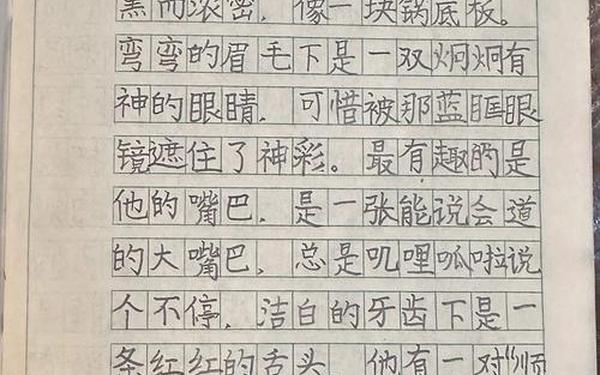 黑而浓密，像一块锅底板。
弯弯的眉毛下是一双炯炯有
神的眼睛，可惜被那蓝眶眼
镜遮住了神彩。最有趣的是
他的嘴巴，是一张能说会道
的大嘴巴，总是叽哩呱啦说
个不停，洁白的牙齿下是一
条红红的舌头，他有一对“顺